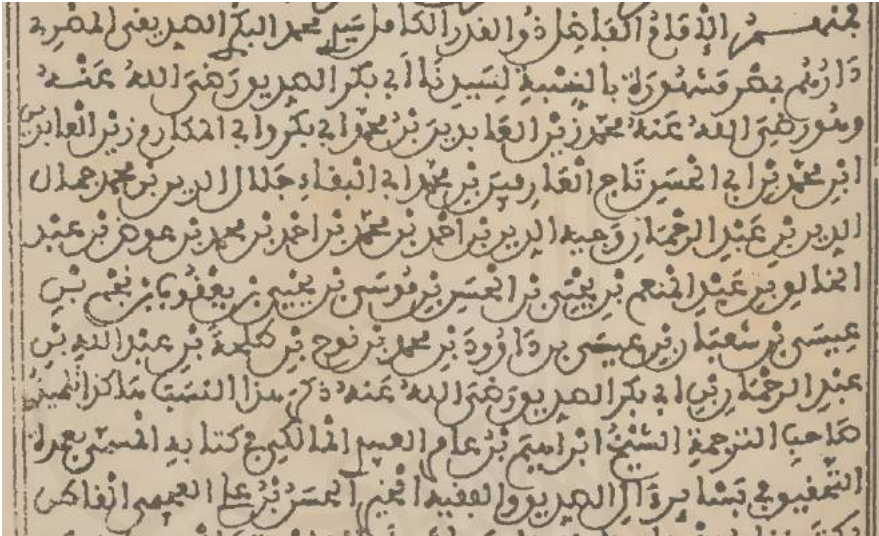 فمنهم الإمام الفاضل ذو القدر الكامل سيدي محمد البكري الصديقي المصري
دارهم بمصر مشهورة بالنسبة لسيدنا أبي بكر الصديق رضي الله عنه
وهو رضي الله عنه محمد زين العابدين بن محمد أبي بكر وأبي المكارم زين العابدين
ابن محمد بن أبي الحسن تاج العارفين بن محمد أبي البقاء جلال الدين بن محمد جمال
الدين بن عبد الرحمان وجيه الدين بن أحمد بن محمد بن أحمد بن محمد بن عوض بن عبد
الخالق بن عبد المنعم بن يحيى بن الحسن بن موسى بن يحيى بن يعقوب بن نجم بن
عيسى بن شعبان بن عيسى بن داوود بن محمد بن نوح بن طلحة بن عبد الله بن
عبد الرحمان بن أبي بكر الصديق رضي الله عنه ذكر هذا النسب هاكذا
صاحب الترجمة الشيخ ابراهيم بن عامر العبيدي المالكي في كتابه المسمى بعمدة
التحقيق في بشاير ءال الصديق والفقيه الحسن بن علي العجيمي